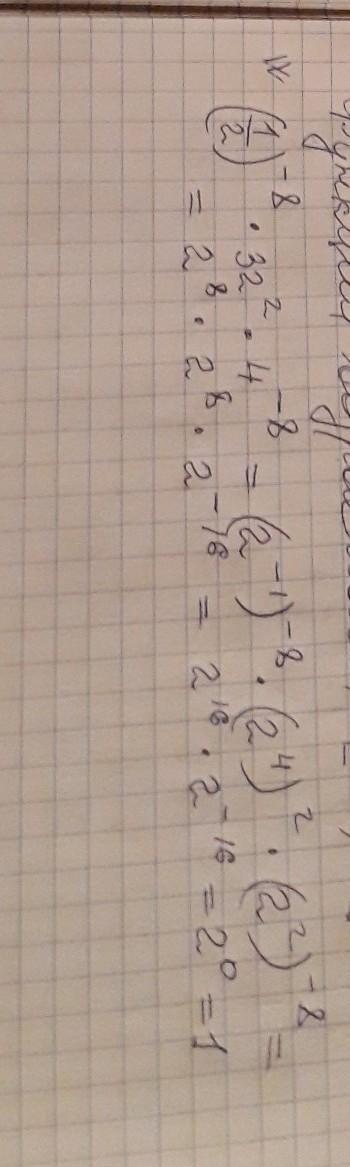 (1/2)^-8 · 32^2 · 4^-8 = (2^-1)^-8 · (2^4)^2 · (2^2)^-8 =
= 2^8 · 2^8 · 2^-16 = 2^16 · 2^-16 = 2^0 = 1